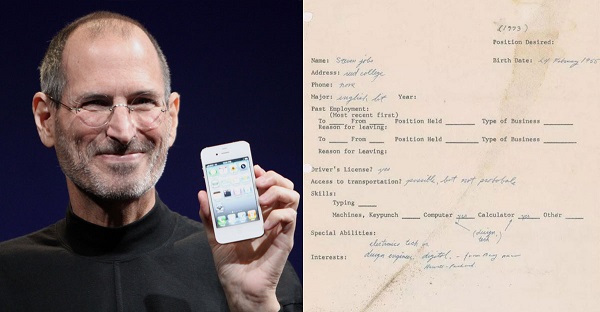 (1973)
Position Desired:
Name: Steven jobs Birth Date: 24 February 1955
Address: reed college
Phone: none
Major: english, lit Year:
Past Employment:
(Most recent first)
To ____ From ____ Position Held ____ Type of Business ____
Reason for leaving:
To ____ From ____ Position Held ____ Type of Business ____
Reason for Leaving:
Driver's License? yes
Access to transportation? possible, but not probable
Skills:
Typing ____
Machines, Keypunch ____ Computer yes Calculator yes Other ____
(design, tech)
Special Abilities:
electronics tech or
Interests: design engineer. digital. - from Bay near
Hewlett-Packard